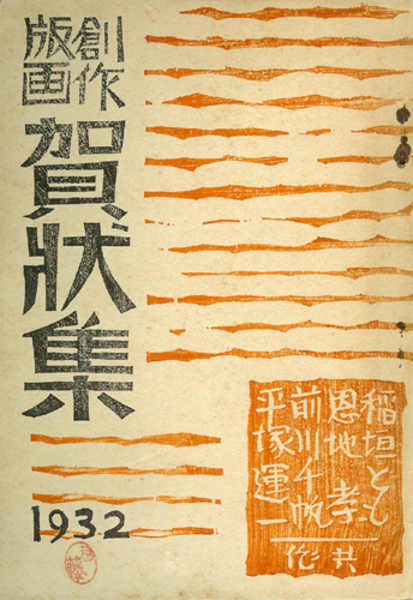 創作
版画
賀狀集
1932
稲垣とも
恩地孝
前川千帆
平塚運一
共作